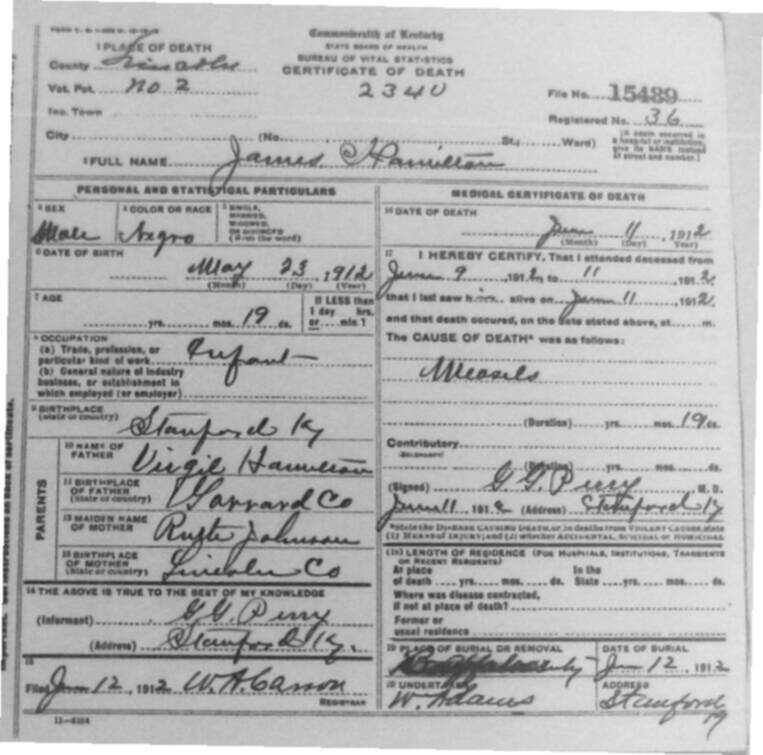 Commonwealth of Kentucky
STATE BOARD OF HEALTH
BUREAU OF VITAL STATISTICS
CERTIFICATE OF DEATH
1 PLACE OF DEATH
County
Vot. Pct. No 2
2340
File No. 15489
Inc. Town
Registered No. 36
City (No. St.; Ward)
(If death occurred in a hospital or institution, give its NAME instead of street and number.)
2 FULL NAME James Hamilton
PERSONAL AND STATISTICAL PARTICULARS
3 SEX Male
4 COLOR OR RACE Negro
5 SINGLE, MARRIED, WIDOWED, OR DIVORCED (Write the word)
6 DATE OF BIRTH May 23, 1912
(Month) (Day) (Year)
7 AGE yrs. mos. 19 ds.
If LESS than 1 day hrs. or min.?
8 OCCUPATION
(a) Trade, profession, or particular kind of work Infant
(b) General nature of industry business, or establishment in which employed (or employer)
9 BIRTHPLACE (State or country) Stanford Ky
PARENTS
10 NAME OF FATHER Virgil Hamilton
11 BIRTHPLACE OF FATHER (State or country) Garrard Co
12 MAIDEN NAME OF MOTHER Johnson
13 BIRTHPLACE OF MOTHER (State or country) Lincoln Co
14 THE ABOVE IS TRUE TO THE BEST OF MY KNOWLEDGE
(Informant) G G Perry
(Address) Stanford Ky.
15
Filed June 12, 1912 W. A. Carson
REGISTRAR
11-6184
MEDICAL CERTIFICATE OF DEATH
16 DATE OF DEATH June 11, 1912
(Month) (Day) (Year)
17 I HEREBY CERTIFY, That I attended deceased from
June 9, 1912, to 11, 1912
that I last saw him alive on June 11, 1912
and that death occured, on the date stated above, at m.
The CAUSE OF DEATH* was as follows:
Measels
(Duration) yrs. mos. 19 ds.
Contributory
(SECONDARY)
(Duration) yrs. mos. ds.
(Signed) G G Perry M. D.
June 11 1912 (Address) Stanford Ky
*State the DISEASE CAUSING DEATH, or, in deaths from VIOLENT CAUSES, state
(1) MEANS OF INJURY; and (2) whether ACCIDENTAL, SUICIDAL or HOMICIDAL
(18) LENGTH OF RESIDENCE (FOR HOSPITALS, INSTITUTIONS, TRANSIENTS OR RECENT RESIDENTS)
At place of death yrs. mos. ds. In the State yrs. mos. ds.
Where was disease contracted, if not at place of death?
Former or usual residence
19 PLACE OF BURIAL OR REMOVAL
DATE OF BURIAL June 12, 1912
20 UNDERTAKER W. Adams
ADDRESS Stanford Ky